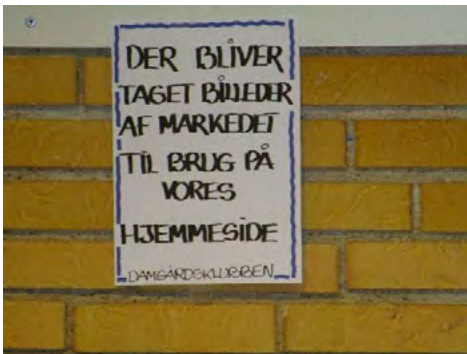 DER BLIVER
TAGET BILLEDER
AF MARKEDET
TIL BRUG PÅ
VORES
HJEMMESIDE
DAMGÅRDSKLUBBEN